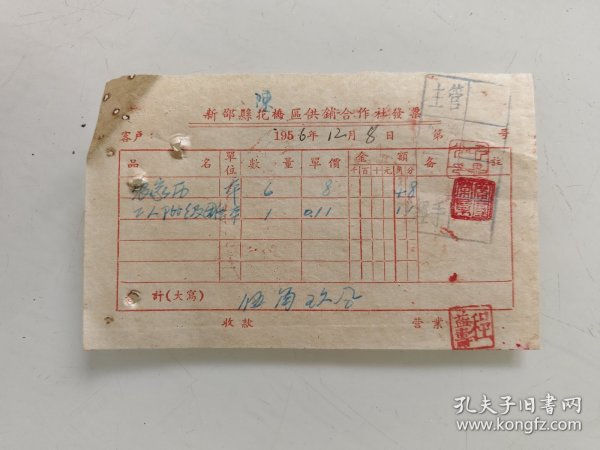 陳
新邵縣花橋區供銷合作社發票
主管
客戶： 1956年12月8日 第 号
品名 單位 數量 單價 金額 备註
千百十元角分
本 6 8 48
本 1 0.11 11
經手
計(大寫) 伍角玖分
收款 营業
孔夫子旧书网
www.kongfz.com